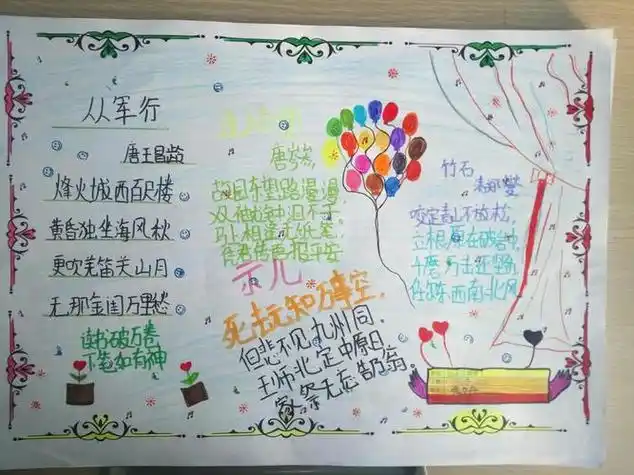 从军行
唐王昌龄
烽火城西百尺楼
黄昏独坐海风秋
更吹羌笛关山月
无那金闺万里愁
读书破万卷
下笔如有神
唐岑参
故园东望路漫漫
双袖龙钟泪不干
马上相逢无纸笔
凭君传语报平安
示儿
死去元知万事空
但悲不见九州同
王师北定中原日
家祭无忘告乃翁
竹石
咬定青山不放松
立根原在破岩中
千磨万击还坚劲
任
西南北风